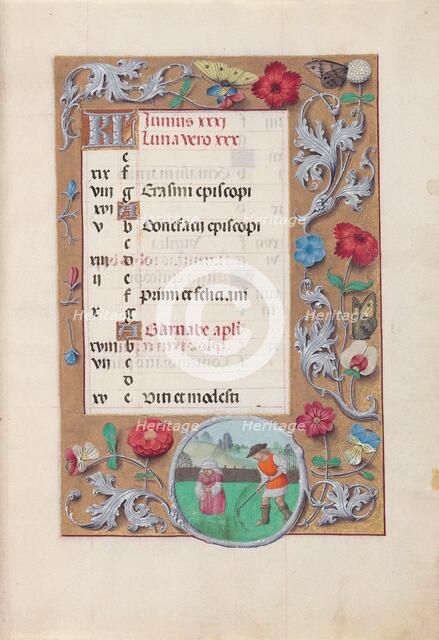 KL Junius xxxi
Luna vero xxx
e
xix f
viii g Erasmi episcopi
xvi A
v b Bonefacii episcopi
c
xiii d
ii e
f Primi et feliciani
x g
A Barnabe apli
xviii b
vii c
d
xv e Viti et modesti
Heritage
Heritage
Heritage
Heritage
Heritage
Heritage